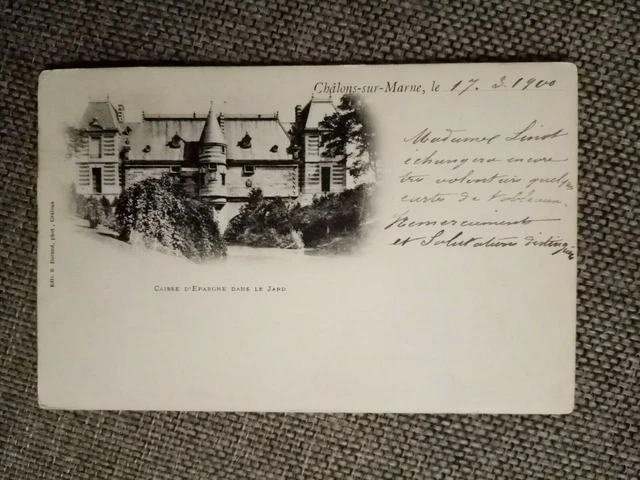 Châlons-sur-Marne, le 17. 3. 1900
Madame Linot
échangera encore
très volontiers quelques
cartes de
Remerciements
et Salutations distinguées
CAISSE D'EPARGNE DANS LE JARD
Edit. G. Durand, phot., Châlons